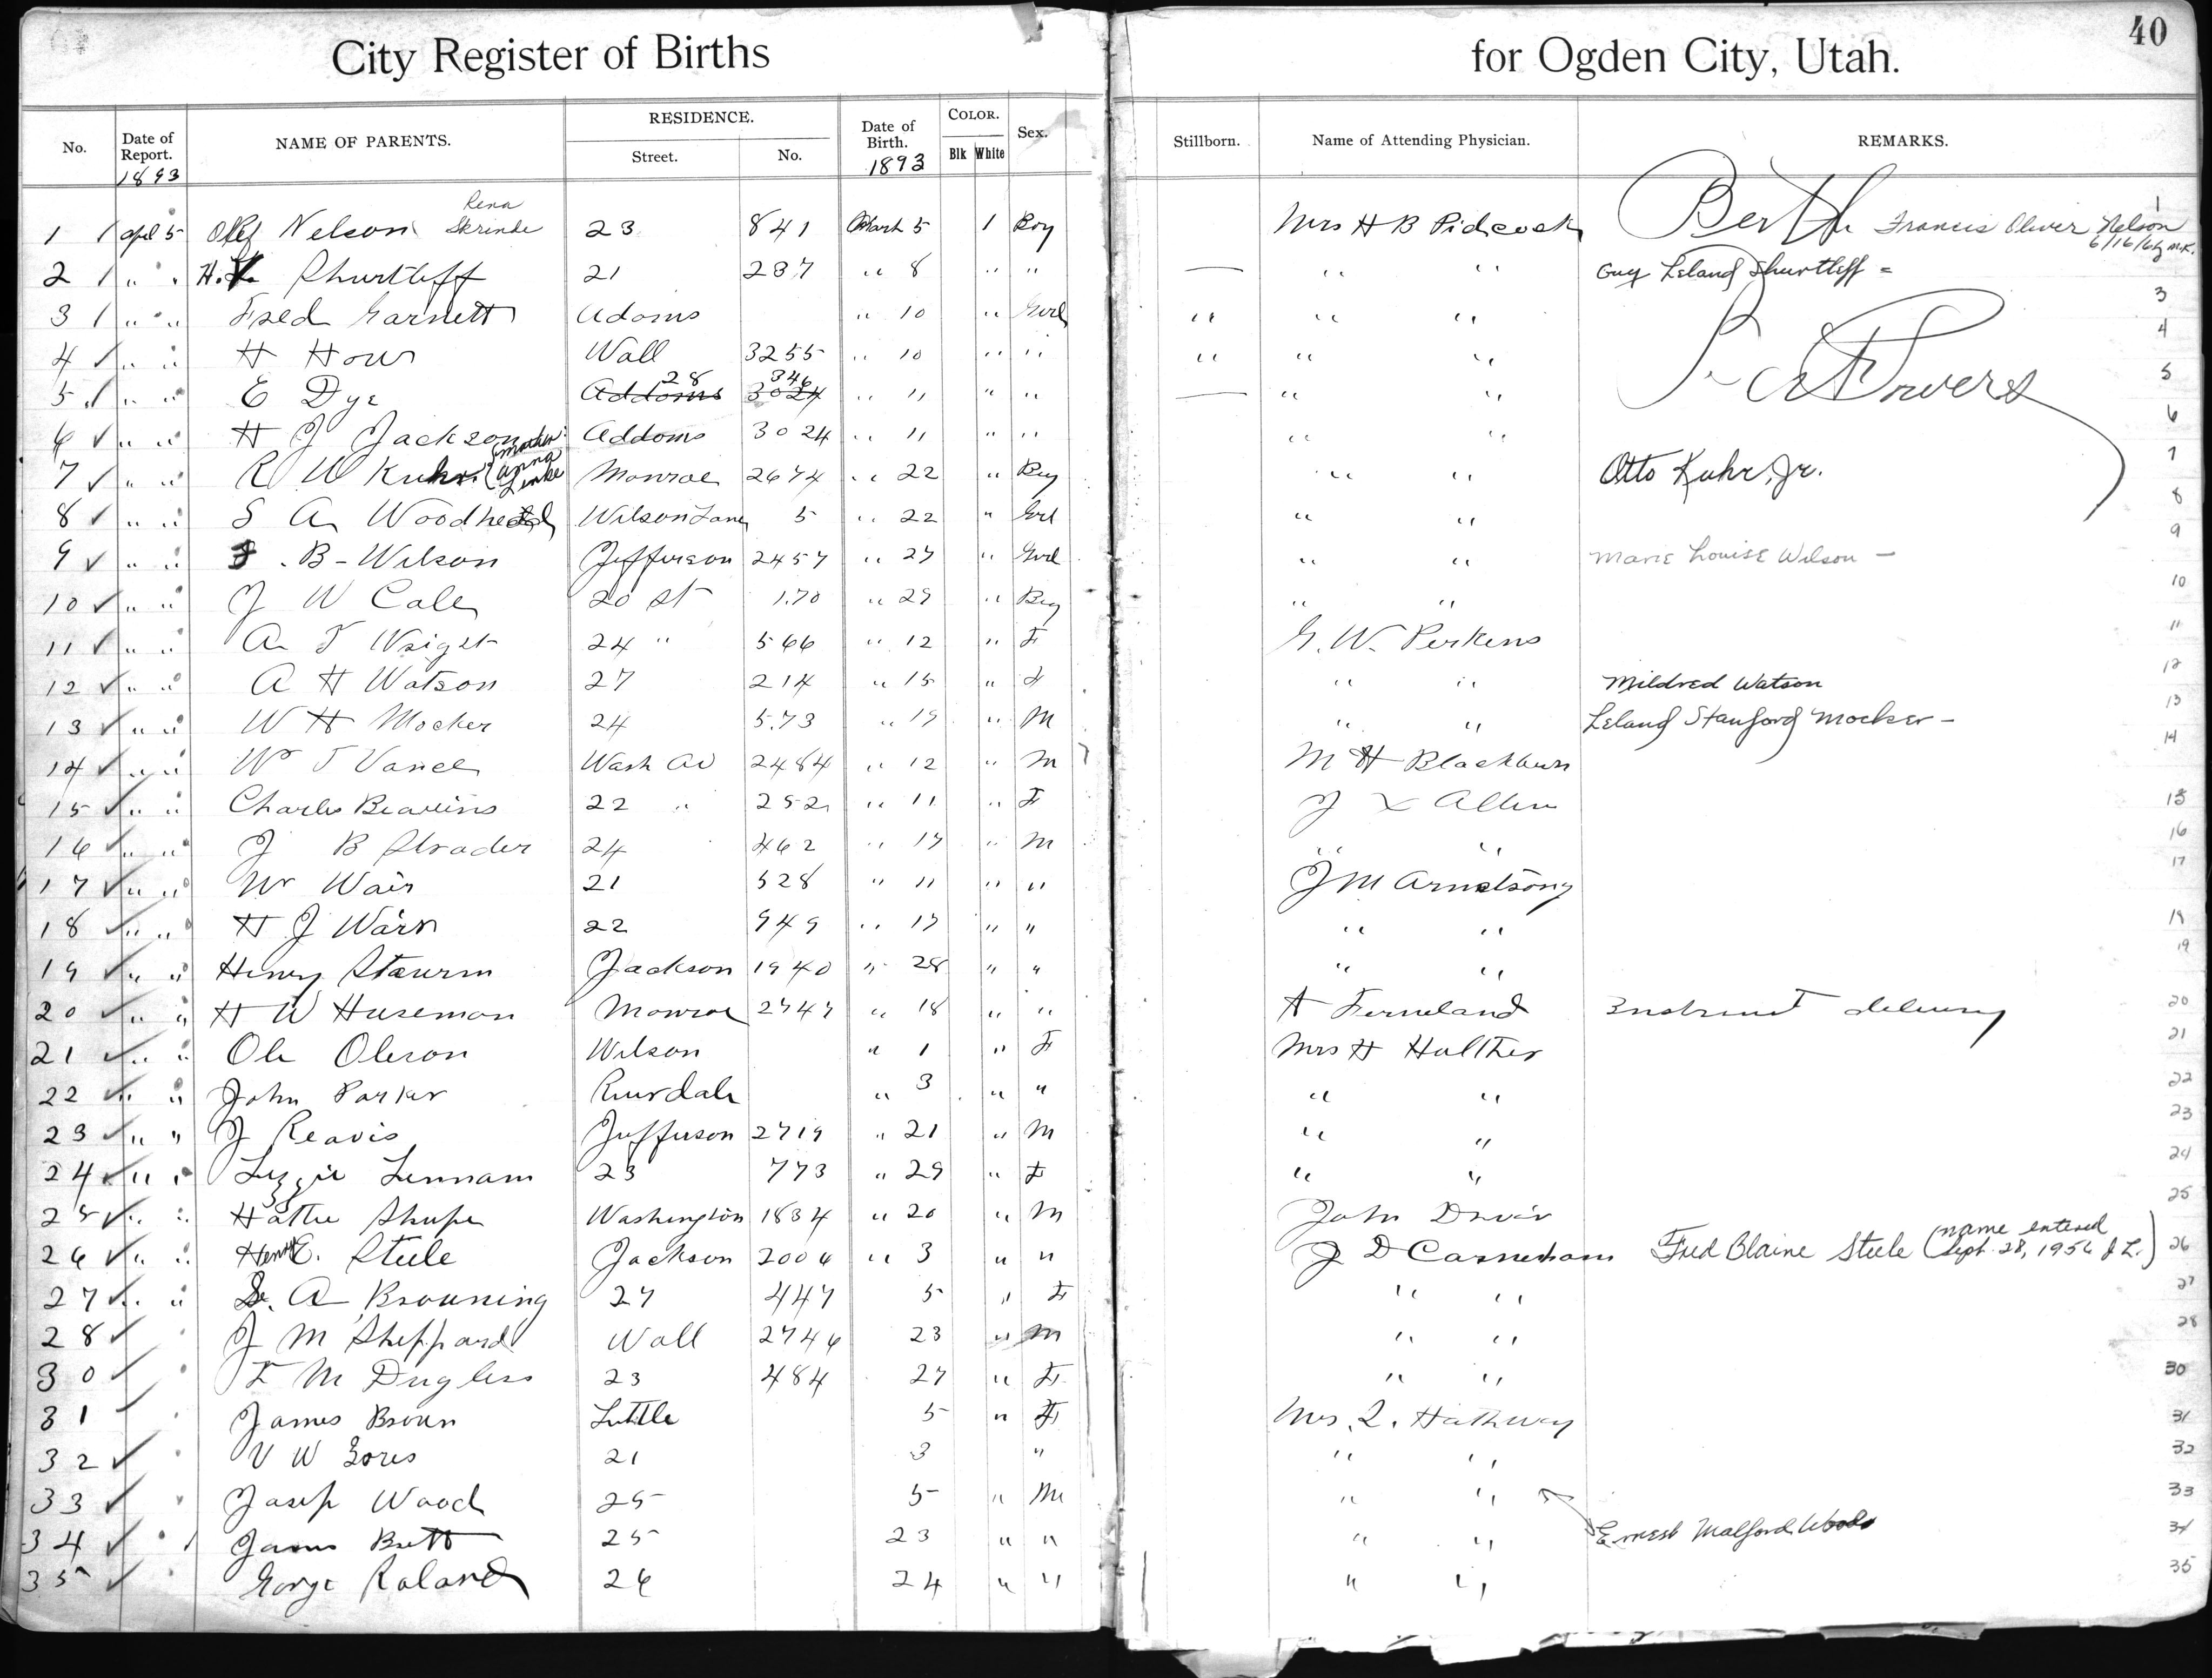 40
City Register of Births for Ogden City, Utah.
No. Date of Report. 1893 NAME OF PARENTS. RESIDENCE. Street. No. Date of Birth. 1893 COLOR. Blk White Sex. Stillborn. Name of Attending Physician. REMARKS.
1 1 Apl 5 Olef Nelson Rena 23 841 March 5 1 Boy Mrs H B Pidcock Berth Francis Oliver Nelson 1
2 1 " " H. Shurtleff 21 237 " 8 " " — " " Guy Leland Shurtleff =
3 1 " " Fred Garnett Adams " 10 " Girl " " " 3
4 ✓ " " H How Wall 3255 " 10 " " " " " 4
5 ✓ " " E Dye Addoms 28 3024 346 " 11 " " — " " 5
6 ✓ " " H J Jackson Addoms 3024 " 11 " " " " 6
7 ✓ " " R W Kuhr (mother Anna Monroe 2674 " 22 " Boy " " Otto Kuhr, Jr. 7
8 ✓ " " S A Woodhead Wilson Lane 5 " 22 " Girl " " 8
9 ✓ " " B - Wilson Jefferson 2457 " 27 " Girl " " Marie Louise Wilson — 9
10 ✓ " " J W Cale 20 st 170 " 29 " Boy " " 10
11 ✓ " " A T Wright 24 " 566 " 12 " F G. W. Perkins 11
12 ✓ " " A H Watson 27 214 " 15 " F " " Mildred Watson 12
13 ✓ " " W H Mocker 24 573 " 19 " M " " Leland Stanford Mocker — 13
14 ✓ " " W T Vance Wash Av 2484 " 12 " M M H Blackburn 14
15 ✓ " " Charles Beavins 22 " 252 " 11 " F J L Allen 15
16 ✓ " " J B Strader 24 462 " 19 " M " " 16
17 ✓ " " Wair 21 528 " 11 " " J M Armstrong 17
18 ✓ " " H J 22 949 " 19 " " " " 18
19 ✓ " " Henry Staurm Jackson 1940 " 28 " " " " 19
20 ✓ " " H W Huseman Monroe 2747 " 18 " " A Ferneland Instrument delivery 20
21 ✓ " " Ole Oleson Wilson " 1 " F Mrs H Halther 21
22 ✓ " " John Parker Riverdale " 3 " " " " 22
23 ✓ " " J Reavis Jefferson 2719 " 21 " M " " 23
24 ✓ " " Lizzie Lennam 23 773 " 29 " F " " 24
25 ✓ " " Hattie Shupe Washington 1834 " 20 " M John Driver 25
26 ✓ " " Henry E. Steele Jackson 2006 " 3 " " J D Carnahan Fred Blaine Steele (name entered Sept. 28, 1956 J L.) 26
27 ✓ " " A Browning 27 447 5 " F " " 27
28 ✓ J M Sheppard Wall 2746 23 " M " " 28
30 ✓ F M Dugless 23 484 27 " F " " 30
31 James Brown Luttle 5 " F Mrs. L. Hathway 31
32 ✓ V W Gores 21 3 " " " 32
33 ✓ Joseph Wood 25 5 " M " " 33
34 ✓ James Butt 25 23 " " " " Ernest Malford Woods 34
35 ✓ George Raland 26 24 " " " " 35